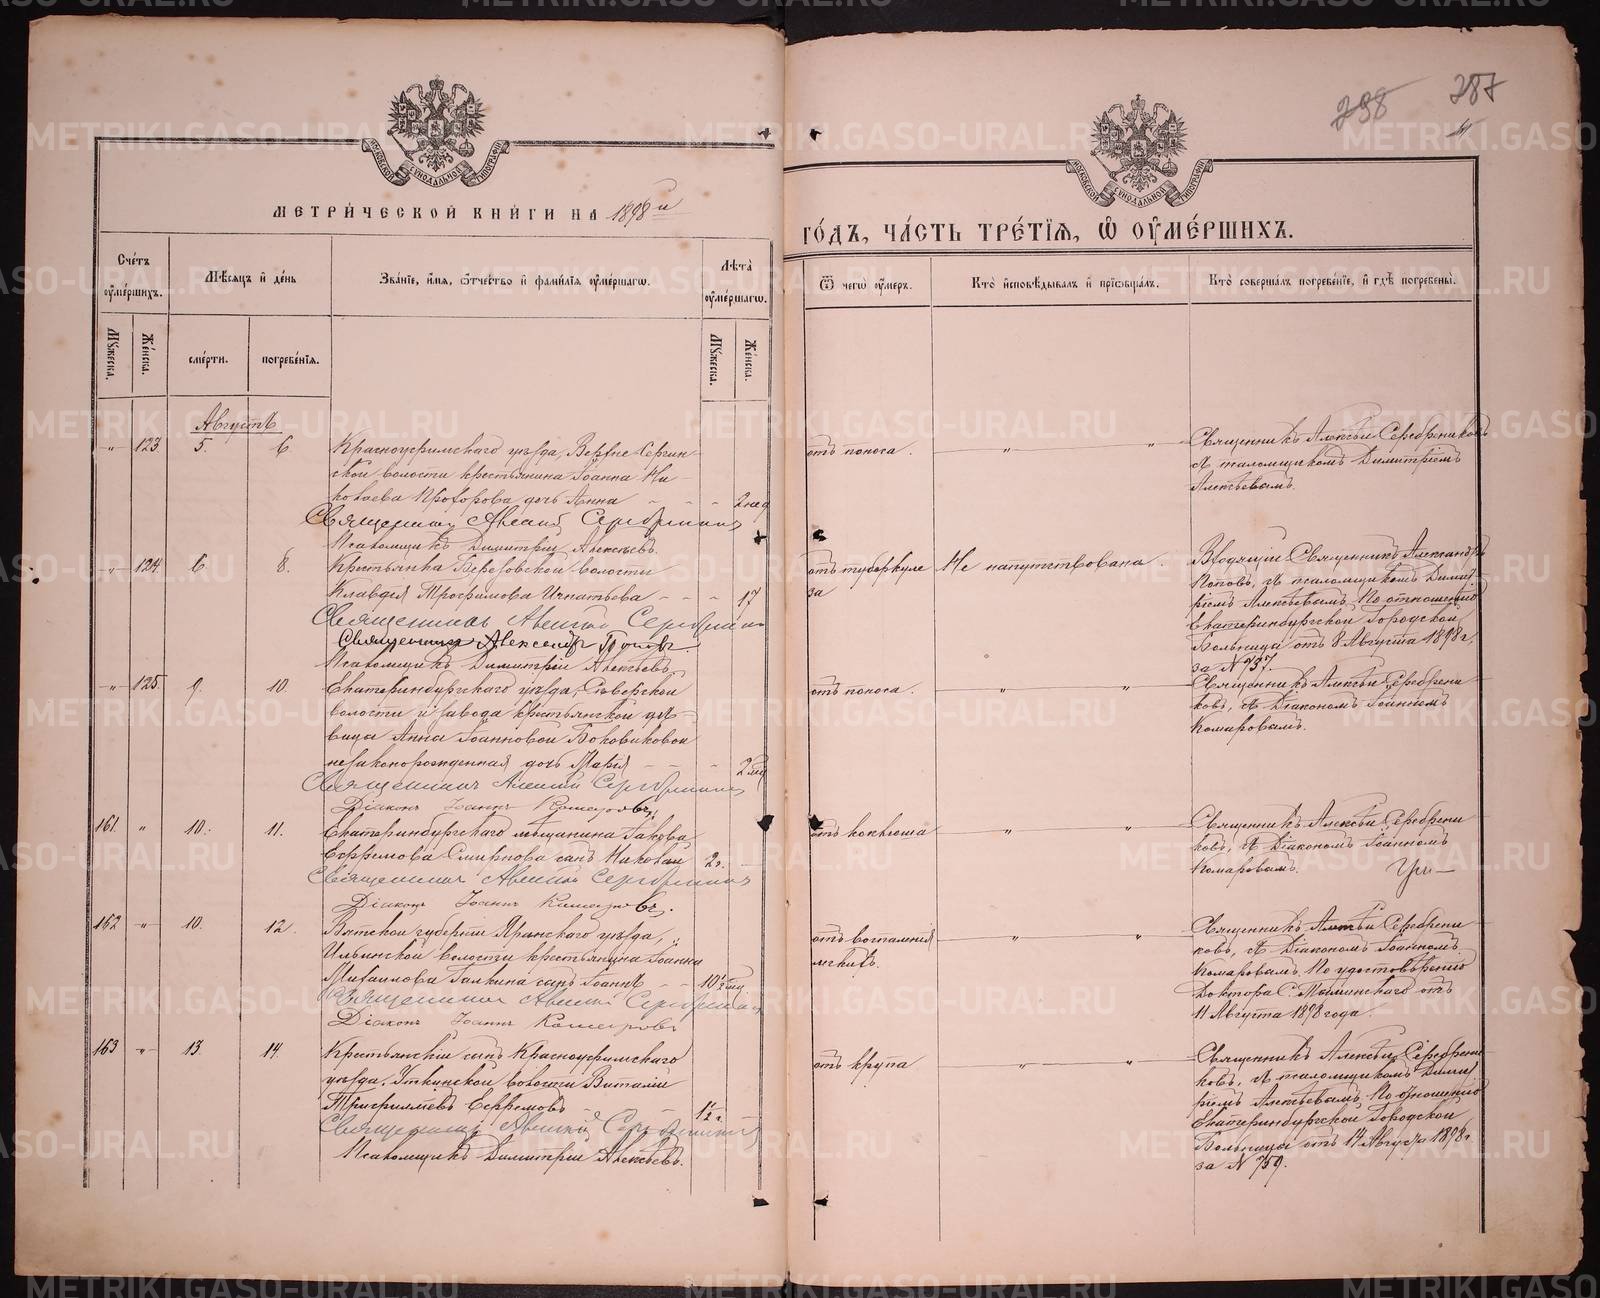 298 287
МЕТРИЧЕСКОЙ КНИГИ НА 1898 й
ГОДЪ, ЧАСТЬ ТРЕТІЯ, Ѿ ОУМЕРШИХЪ.
Счетъ оумершихъ.
Мѣсяцъ и день
Званіе, имя, отчество и фамилія оумершагѡ.
Лѣта оумершагѡ.
Ѿ чегѡ оумеръ.
Кто исповѣдывалъ и пріобщалъ.
Кто совершалъ погребеніе, и гдѣ погребены.
Мужеска. Женска.
смерти. погребенія.
Мужеска. Женска.
Августъ
" 123. 5. 6. Красноуфимскаго уѣзда, Верхне Сергин-
ской волости крестьянина Іоанна Ни-
колаева Прохорова дочь Анна - - - 2 нед
Священникъ Алексій Серебренниковъ
Псаломщикъ Димитрій Алексѣевъ.
отъ поноса. " "
Священникъ Алексѣй Серебрениковъ
съ псаломщикомъ Димитріемъ
Алексѣевымъ.
" 124 6. 8. Крестьянка Березовской волости
Клавдія Трофимова Игнатьева - - - 17
Священникъ Алексій Серебренниковъ
Священникъ Александръ Поповъ.
Псаломщикъ Димитрій Алексѣевъ
отъ туберкуле
за
Не напутствована.
Входящій Священникъ Александръ
Поповъ, съ псаломщикомъ Димит
ріемъ Алексѣевымъ. По отношенію
Екатеринбургской Городской
Больницы отъ 8 Августа 1898 г.
за № 737.
" 125. 9. 10. Екатеринбургскаго уѣзда, Сысертской
волости и завода крестьянской дѣ-
вицы Анны Іоанновой Боковиковой
незаконорожденная дочь Марія - - - 2 мц
Священникъ Алексій Серебренниковъ
Діаконъ Іоаннъ Комаровъ.
отъ поноса. " "
Священникъ Алексѣй Серебрени
ковъ, съ Діакономъ Іоанномъ
Комаровымъ.
161. " 10. 11. Екатеринбургскаго мѣщанина Іакова
Ефремова Смирнова сынъ Николай 2 г.
Священникъ Алексій Серебренниковъ
Діаконъ Іоаннъ Комаровъ.
отъ коклюша " "
Священникъ Алексѣй Серебрени
ковъ, съ Діакономъ Іоанномъ
Комаровымъ.
162 " 10. 12. Вятской губерніи Яранскаго уѣзда,
Ильинской волости крестьянина Іоанна
Михаилова Галкина сынъ Іоаннъ - - 10 1/2 мц
Священникъ Алексій Серебренниковъ
Діаконъ Іоаннъ Комаровъ
отъ воспаленія
легкихъ.
" "
Священникъ Алексѣй Серебрени
ковъ, съ Діакономъ Іоанномъ
Комаровымъ. По удостовѣренію
Доктора С. Маминскаго отъ
11 Августа 1898 года.
163 " 13. 14. Крестьянскій сынъ Красноуфимскаго
уѣзда, Уткинской волости Виталій
Ефремовъ - - 1 1/2 г.
Священникъ Алексій Серебренниковъ
Псаломщикъ Димитрій Алексѣевъ.
отъ крупа " "
Священникъ Алексѣй Серебрени
ковъ, съ псаломщикомъ Димит
ріемъ Алексѣевымъ. По отношенію
Екатеринбургской Городской
Больницы отъ 14 Августа 1898 г.
за № 759.
METRIKI.GASO-URAL.RU